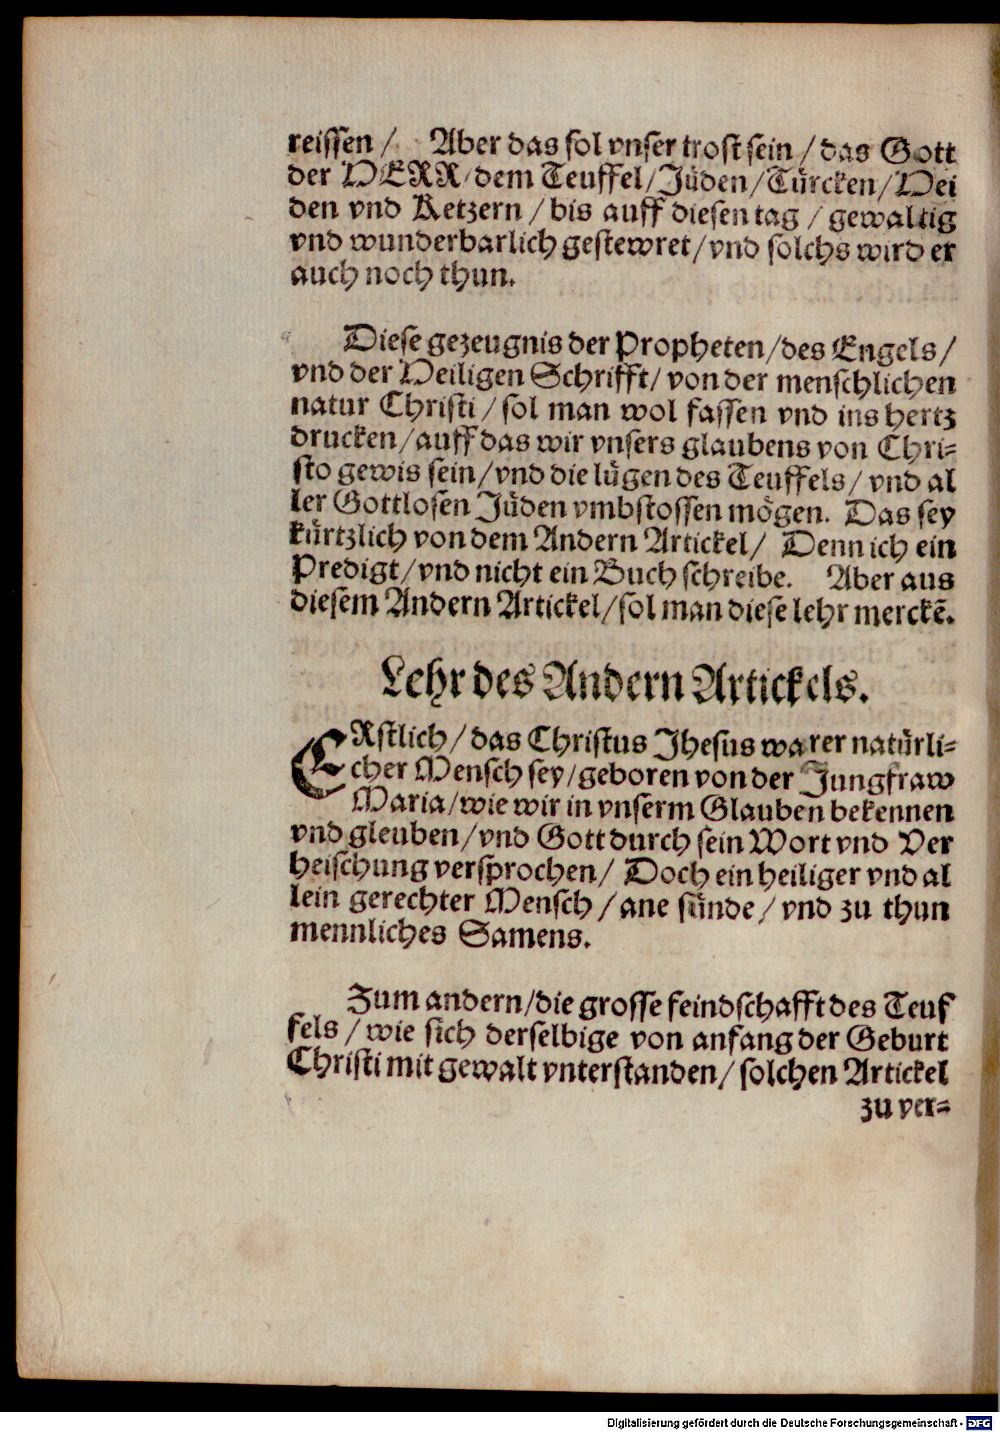 reissen / Aber das sol vnser trost sein / das Gott
der HERR / dem Teuffel / Jüden / Türcken / Hei
den vnd Ketzern / bis auff diesen tag / gewaltig
vnd wunderbarlich gestewret / vnd solchs wird er
auch noch thun.
Diese gezeugnis der Propheten / des Engels /
vnd der Heiligen Schrifft / von der menschlichen
natur Christi / sol man wol fassen vnd ins hertz
drucken / auff das wir vnsers glaubens von Chri-
sto gewis sein / vnd die lügen des Teuffels / vnd al
ler Gottlosen Jüden vmbstossen mögen. Das sey
kürtzlich von dem Andern Artickel / Denn ich ein
Predigt / vnd nicht ein Buch schreibe. Aber aus
diesem Andern Artickel / sol man diese lehr merckẽ.
Lehr des Andern Artickels.
ERstlich / das Christus Jhesus warer natürli-
cher Mensch sey / geboren von der Jungfraw
Maria / wie wir in vnserm Glauben bekennen
vnd gleuben / vnd Gott durch sein Wort vnd Ver
heischung versprochen / Doch ein heiliger vnd al
lein gerechter Mensch / ane sünde / vnd zu thun
mennliches Samens.
Zum andern / die grosse feindschafft des Teuf
fels / wie sich derselbige von anfang der Geburt
Christi mit gewalt vnterstanden / solchen Artickel
zu ver-
Digitalisierung gefördert durch die Deutsche Forschungsgemeinschaft - DFG